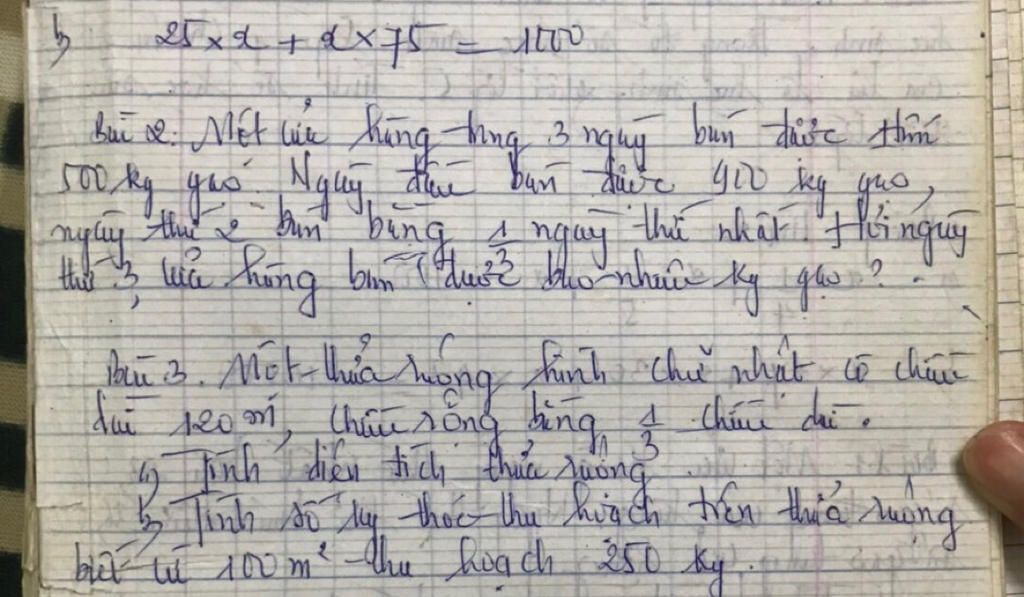 b) 25 × x + x × 75 = 1000
Bài 2. Một cửa hàng trong 3 ngày bán được tất
500 kg gạo. Ngày đầu bán được 900 kg gạo,
ngày thứ 2 bán bằng 1/3 ngày thứ nhất. Hỏi ngày
thứ 3, cửa hàng bán được bao nhiêu kg gạo?.
Bài 3. Một thửa ruộng hình chữ nhật có chiều
dài 120 m, chiều rộng bằng 1/3 chiều dài.
a) Tính diện tích thửa ruộng.
b) Tính số kg thóc thu hoạch trên thửa ruộng
biết cứ 100 m² thu hoạch 250 kg.